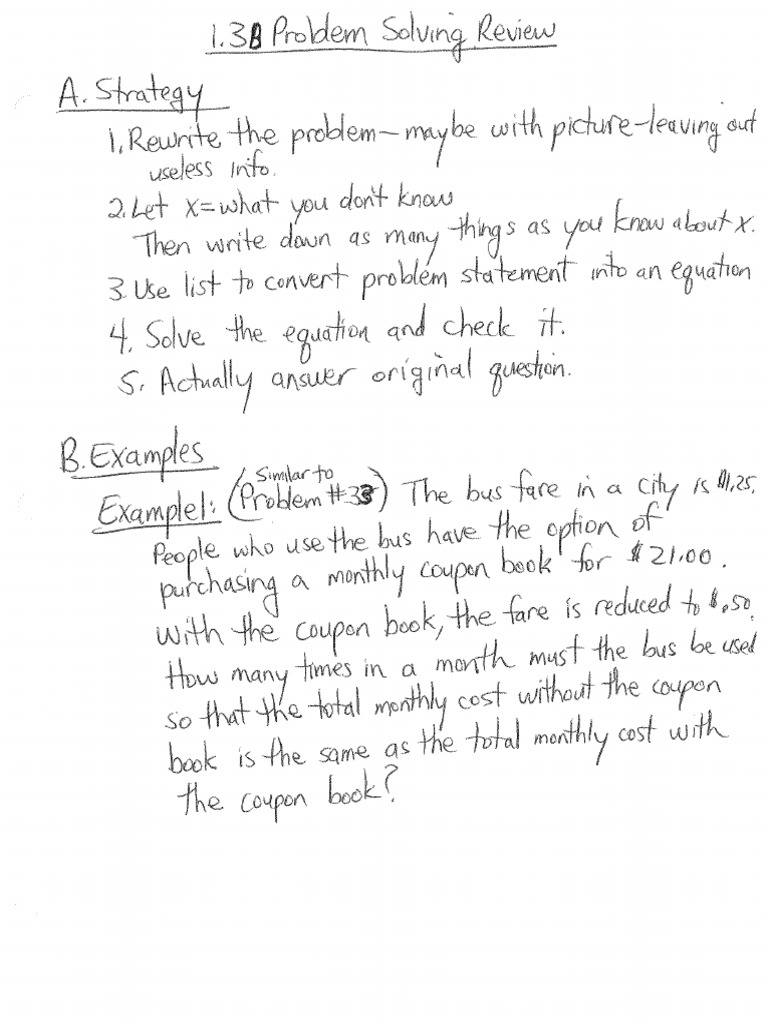 1.3B Problem Solving Review
A. Strategy
1. Rewrite the problem—maybe with picture—leaving out
useless info.
2. Let x=what you don't know
Then write down as many things as you know about x.
3. Use list to convert problem statement into an equation
4. Solve the equation and check it.
5. Actually answer original question.
B. Examples
Example1: (Similar to
Problem #33) The bus fare in a city is $1.25.
People who use the bus have the option of
purchasing a monthly coupon book for $21.00.
With the coupon book, the fare is reduced to $.50.
How many times in a month must the bus be used
so that the total monthly cost without the coupon
book is the same as the total monthly cost with
the coupon book?